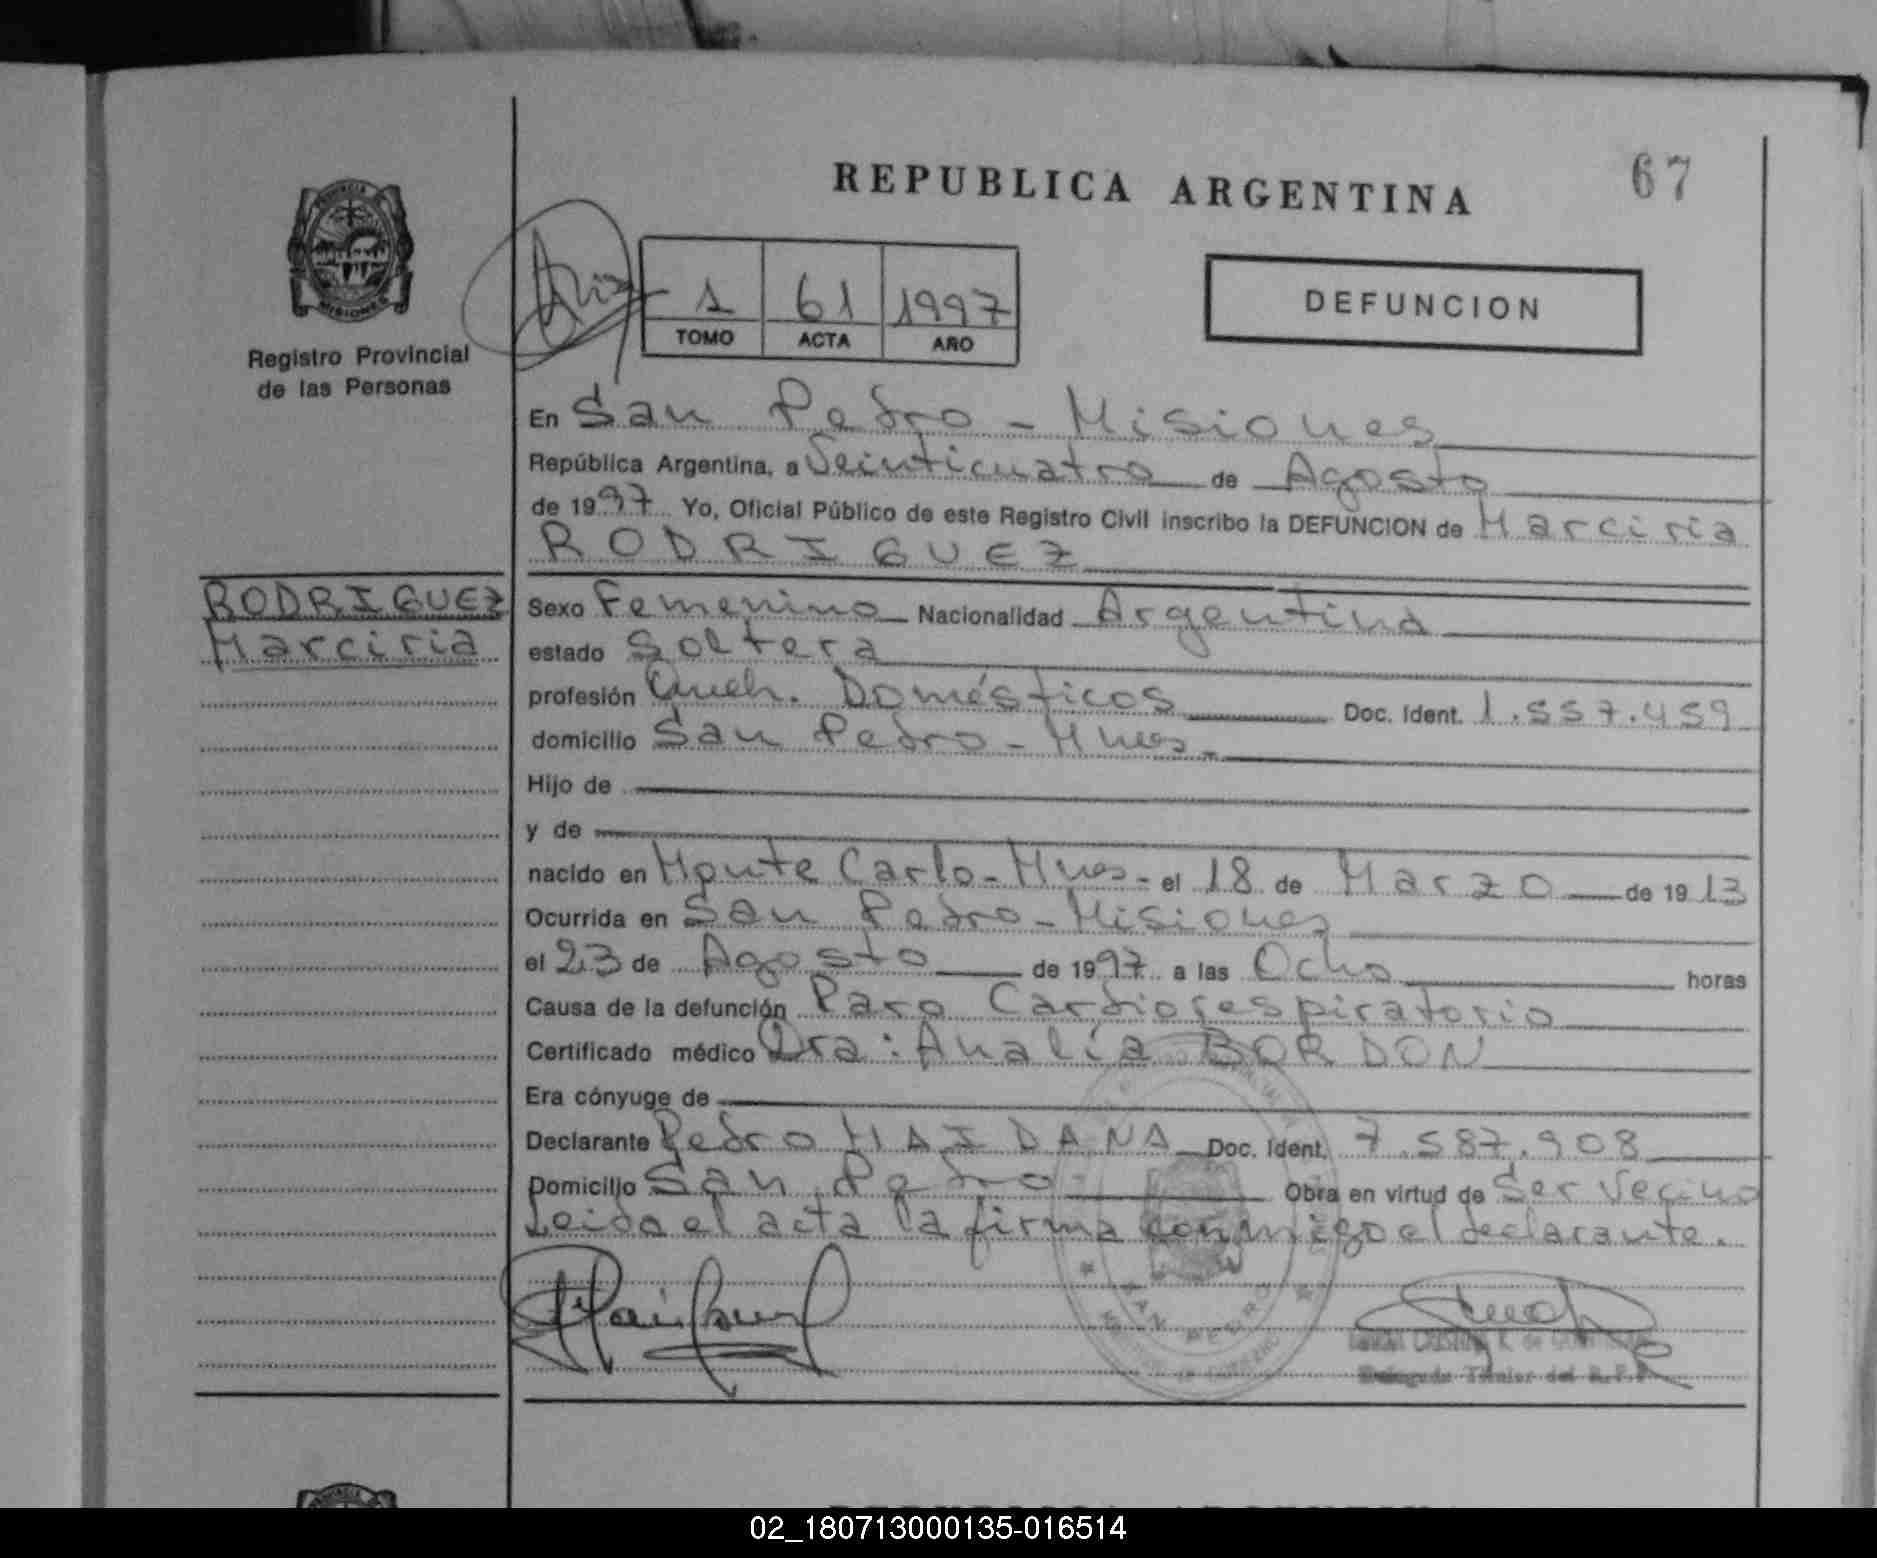 67
REPUBLICA ARGENTINA
PROVINCIA
MISIONES
Registro Provincial
de las Personas
1 61 1997
TOMO ACTA AÑO
DEFUNCION
En San Pedro - Misiones
República Argentina, a Veinticuatro de Agosto
de 1997 Yo, Oficial Público de este Registro Civil inscribo la DEFUNCION de Marciria
RODRIGUEZ
RODRIGUEZ
Marciria
Sexo Femenino Nacionalidad Argentina
estado Soltera
profesión Queh. Domésticos Doc. Ident. 1.557.459
domicilio San Pedro - Mnes.
Hijo de
y de
nacido en Monte Carlo - Mnes - el 18 de Marzo de 1913
Ocurrida en San Pedro - Misiones
el 23 de Agosto de 1997 a las Ocho horas
Causa de la defunción Paro Cardiorespiratorio
Certificado médico Dra: Analía BORDON
Era cónyuge de
Declarante Pedro MAIDANA Doc. Ident. 7.587.908
Domicilio San Pedro Obra en virtud de Ser Vecino
Leida el acta la firma conmigo el declarante.
SAN PEDRO
Delegada Titular del R.P.P.
02_180713000135-016514